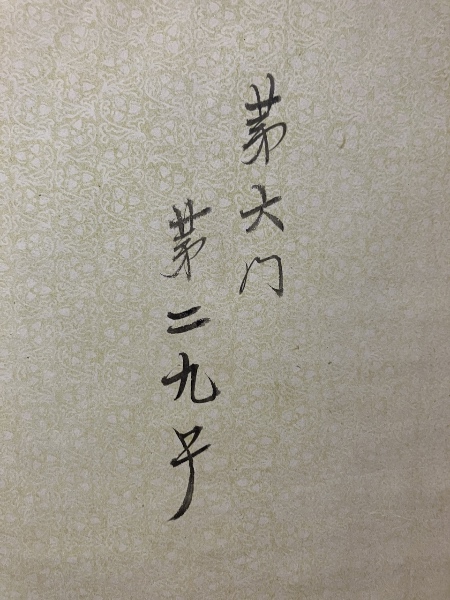 第大门
第二九号